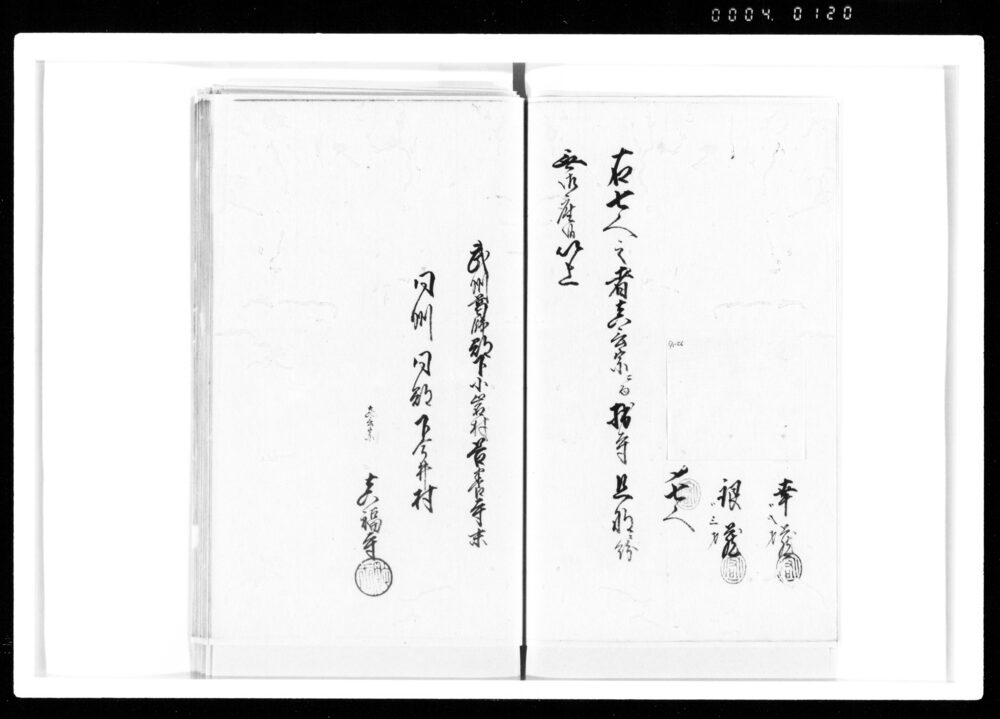 0004. 0120
幸蔵
銀蔵
三才
〆七人
右七人之者真言宗ニ而拙寺旦那ニ紛
無御座候以上
武州葛飾郡下小岩村善養寺末
同州同郡下今井村
真言宗
真福寺